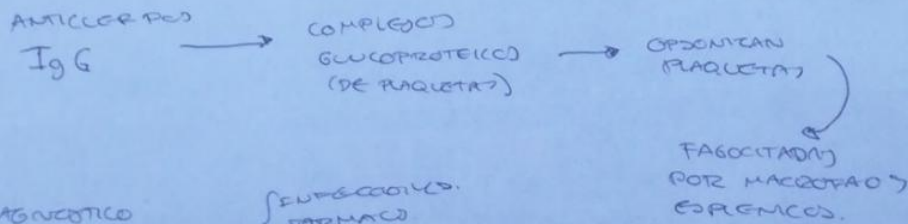 ANTICUERPOS
IgG
COMPLEJOS
GLUCOPROTEICOS
(DE PLAQUETAS)
OPSONIZAN
PLAQUETAS
FAGOCITADAS
POR MACROFAGOS
ESPLENICOS
AGNOSTICO
INFECCIOSO.
FARMACO